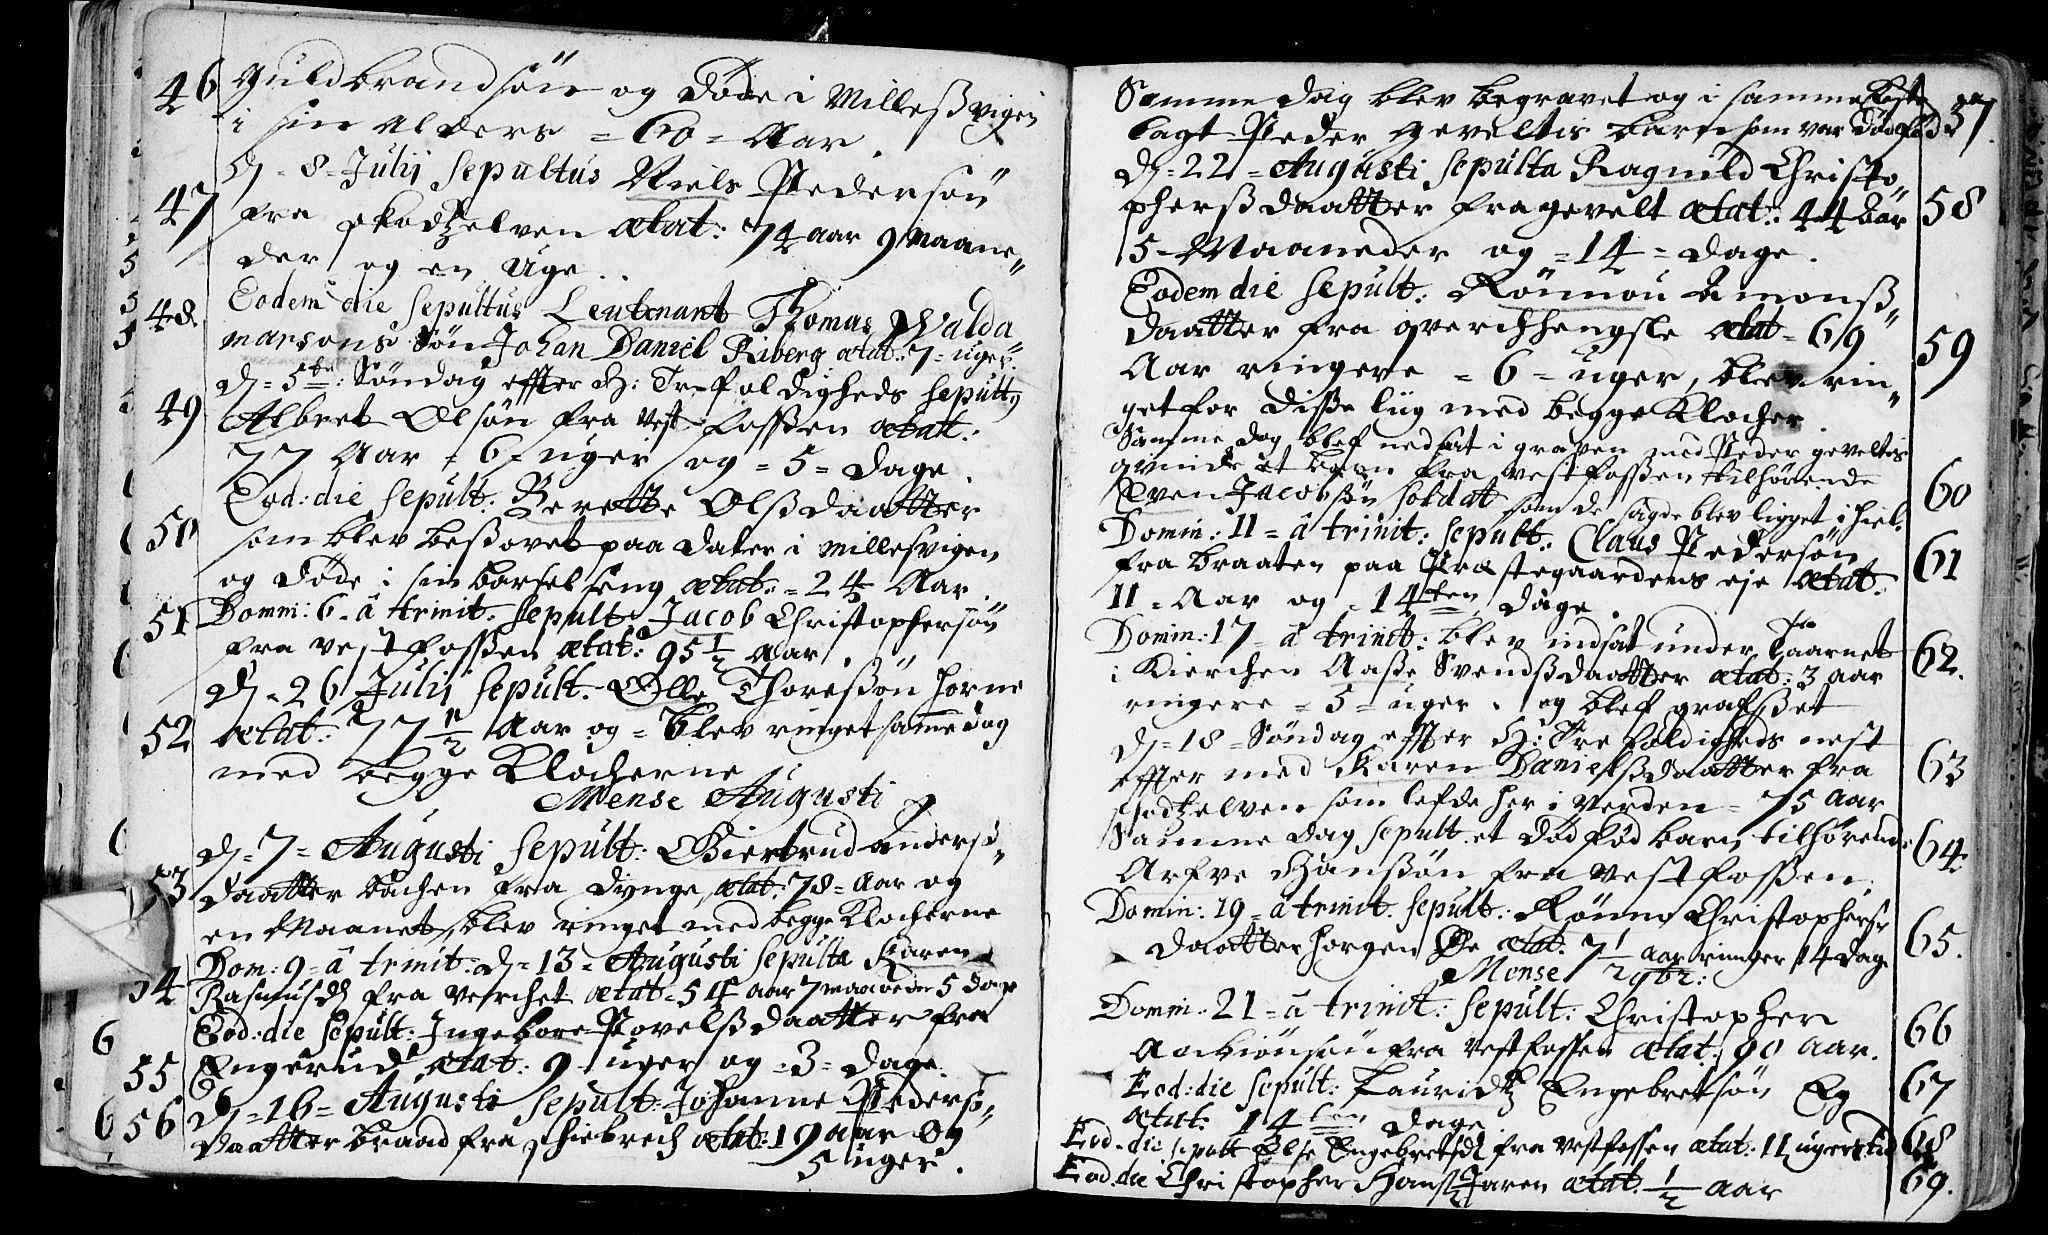 46 Guldbrandsøn og døde i Milleßvigen
i sin Alders = 60 = Aar.
47 D = 8 = Julij Sepultus Niels Pedersøn
fra skodtzelven ætat: 74 aar 9 Maane„
der og en Uge.
48 Eodem die Sepultus Leutenant Thomas Walda„
marsons Søn Johan Daniel Riberg ætat: 7 = uger.
49 D = 5te: Søndag effter H: Trefoldigheds Sepult9
Albret Olsøn fra Vestfossen ætat:
77 Aar = 6 = uger og = 5 = dage.
50 Eod: die Sepult: Berette Olßdaatter
som blev besovet paa dater i Millesvigen
og døde i sin barsel seng ætat: = 24 Aar.
51 Domin: 6 = â trinit. Sepult Jacob Christophersøn
fra Vestfossen ætat: 95 1/2 Aar.
52 D = 26 Julij Sepult. Olle Thoresøn horne
ætat: 77 1/2 Aar og = blev ringet samme dag
med begge Klocherne
Mense Augusti
53 D = 7 = Augusti Sepult: Giertrud anderß„
daatter bachen fra dynge ætat: 78 = Aar og
en Maanet, blev ringet med begge Klocherne
54 Dom: 9 = â trinit: D = 13 = Augusti Sepulta Karen
Rasmusd fra Verchet ætat = 51 aar 7 maaneder 5 dage
55 Eod: die Sepult: Ingebore Povelßdaatter fra
Engerud ætat: 9 uger og = 3 = dage.
56 D = 16 = Augusti Sepult: Johanne Peders„
daatter braad fra schiebrech ætat: 19 aar Og
5 uger.
Samme dag blev begravet og i samme Kiste 57.
lagt Peder Geveltis barn som var dødfød
D = 22 = Augusti Sepulta Ragnild Christo„
pherßdaatter fra gevelt ætat: 44 aar 58
5 = Maaneder og = 14 = dage.
Eodem die Sepult: Rønnou Amonß„
daatter fra qverchhengsle ætat = 69 59
Aar ringere = 6 = uger, blev rin„
get for disse liig med begge Klocher
Samme dag blef nedsat i graven med Peder geveltis
qvinde et barn fra vestfossen tilhørende 60
Even Jacobsøn soldat som de sagde blev ligget ihiel.
Domin: 11 = â trinit: Sepult: Claus Pedersøn 61
fra braaten paa Præstegaardens eje ætat:
11 = Aar og = 14ten dage.
Domin: 17 = â trinit: blev indsat under taarnet 62.
i Kierchen Aaße Svendßdaatter ætat: 3 aar
ringere = 5 = uger. og blef grafsset
D = 18 = Søndag effter H: Trefoldigheds nest
effter med Karen Danielßdaatter fra 63
schodtzelven som lefde her i verden = 75 Aar
Samme dag Sepult. et død fød barn tilhørende 64
Arfve Hansøn fra Vestfossen.
Domin: 19 = â trinit. Sepult: Rønne Christophers„
daatter horgen Øe ætat. 7 1/2 aar ringer 14 dage 65.
Mense 9br:
Domin. 21 = â trinit: Sepult: Christopher 66
Anbiønsøn fra Vestfossen ætat: 90 Aar.
Eod: die Sepult: Lauridtz Engebretsøn Eg 67
ætat. 14ten dage
Eod: die sepult Else Engebretsd fra Vestfossen ætat: 11 ugers tid 68
Eod: die Christopher Hansø Jaren ætat. 1/2 aar 69.